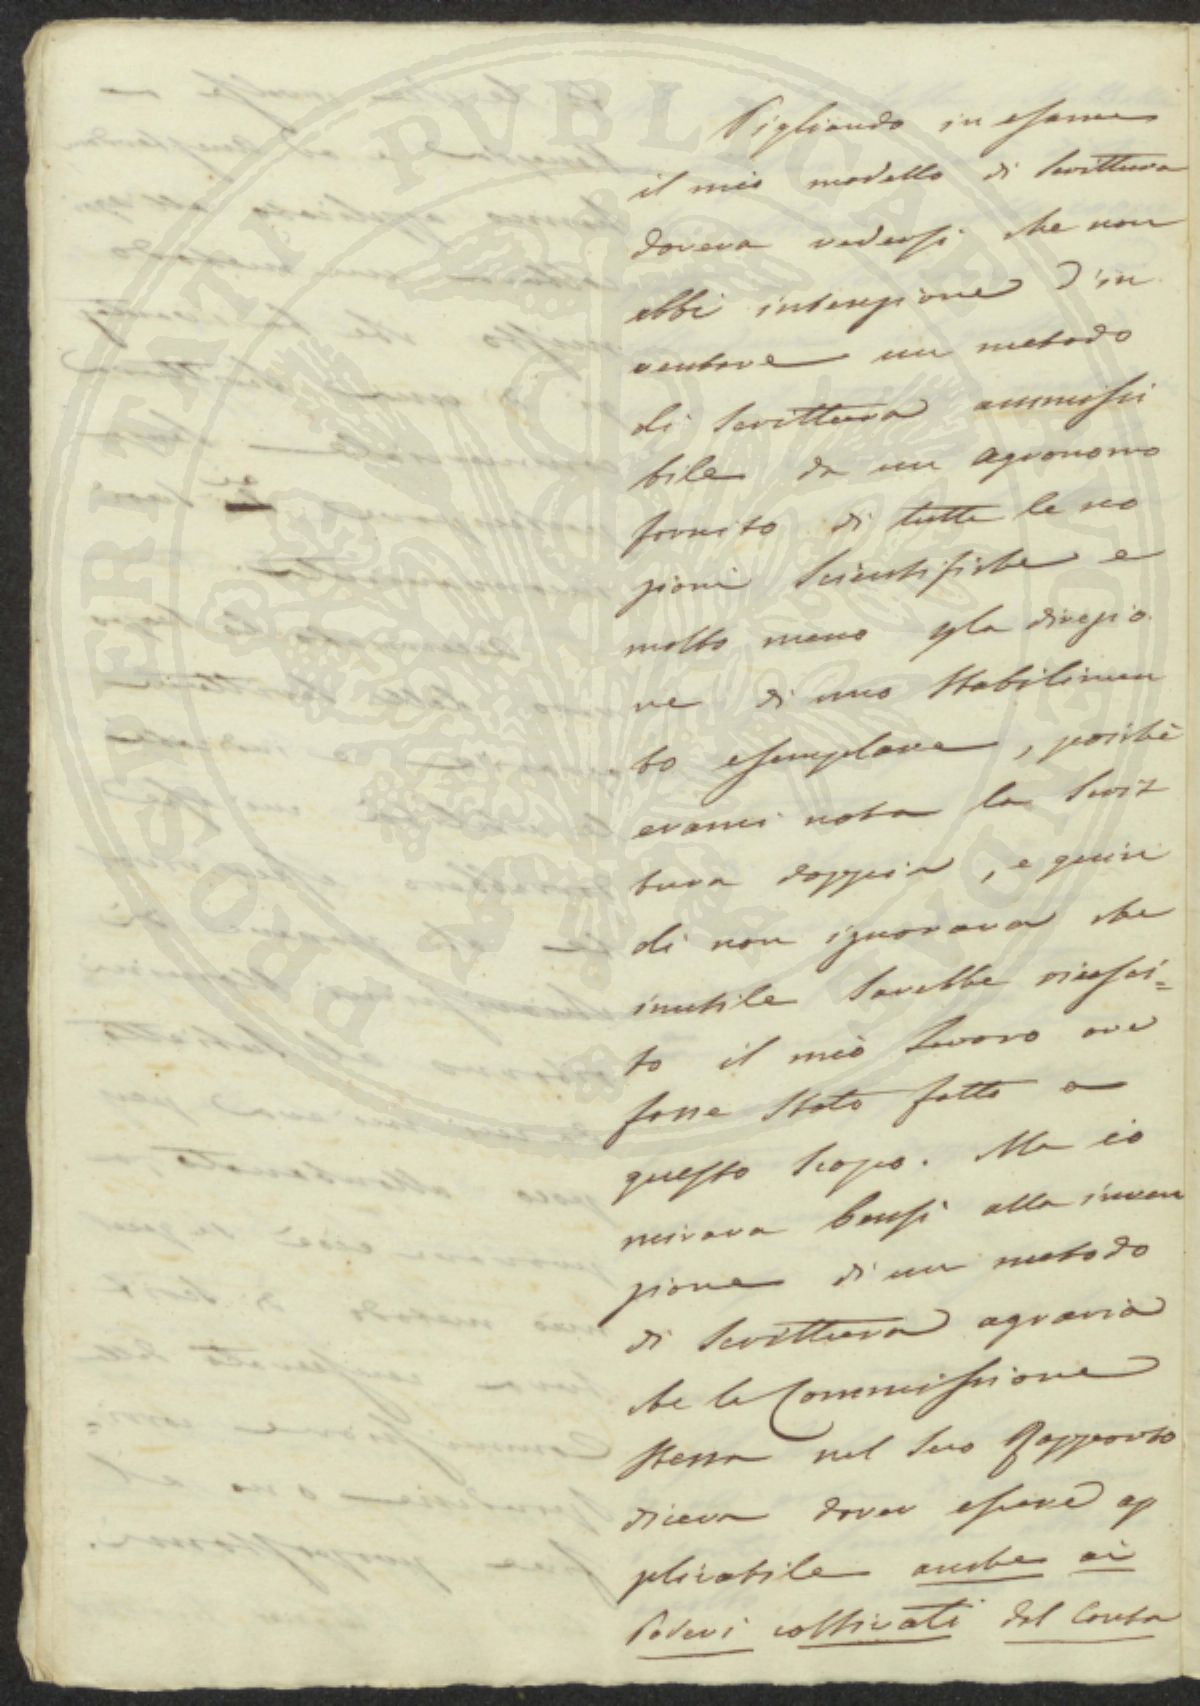 Pigliando in esame
il mio modello di Scrittura
doveva vedersi che non
ebbi intenzione d'in
ventare un metodo
di Scrittura ammissi
bile da un agronomo
fornito di tutte le no
zioni Scientifiche e
molto meno p la direzio
ne di uno Stabilimen
to esemplare, poichè
erami nota la Scrit
tura doppia, e quin
di non ignorava che
inutile Sarebbe riusci=
to il mio lavoro ove
fosse Stato fatto a
questo Scopo. Ma io
mirava bensì alla inven
zione di un metodo
di Scrittura agraria
che la Commissione
Stessa nel Suo Rapporto
diceva dover essere ap
plicabile anche ai
Poderi coltivati dal Conta
PROSPERITATI PVBLICAE AVGENDAE